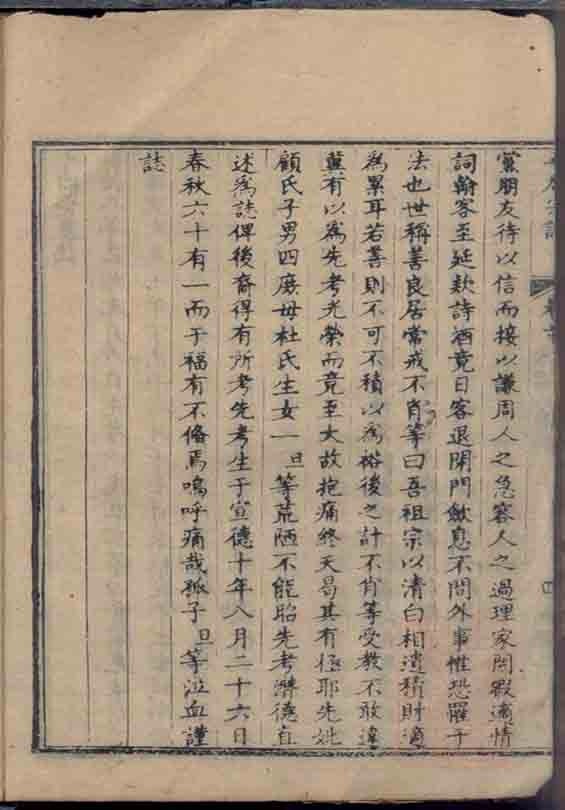 黨朋友待以信而接以謙周人之急容人之過理家閑暇適情
詞翰客至延欵詩酒竟日客退閑門歛息不問外事惟恐罹于
法也世稱善良居常戒不肖等曰吾祖宗以清白相遺積財適
爲累耳若善則不可不積以爲裕後之計不肖等受教不敢違
冀有以爲先考光榮而竟至大故抱痛終天曷其有極耶先妣
顧氏子男四庶母杜氏生女一旦等荒陋不能昭先考潛德直
述爲誌俾後裔得有所考先考生于宣德十年八月二十六日
春秋六十有一而于福有不偹焉嗚呼痛哉孤子旦等泣血謹
誌